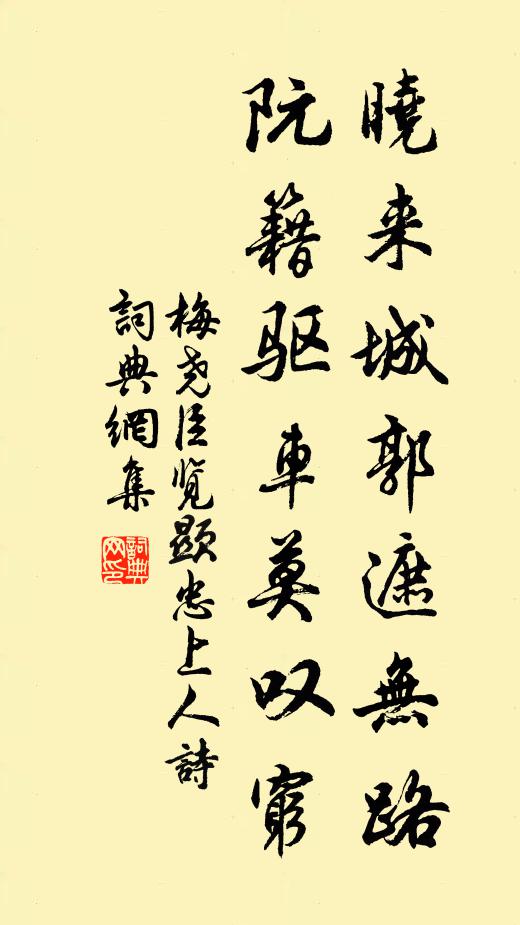 曉来城郭遮無路
阮籍驱車莫叹窮
梅尧臣览顯忠上人詩
詞典網集
詞典网印